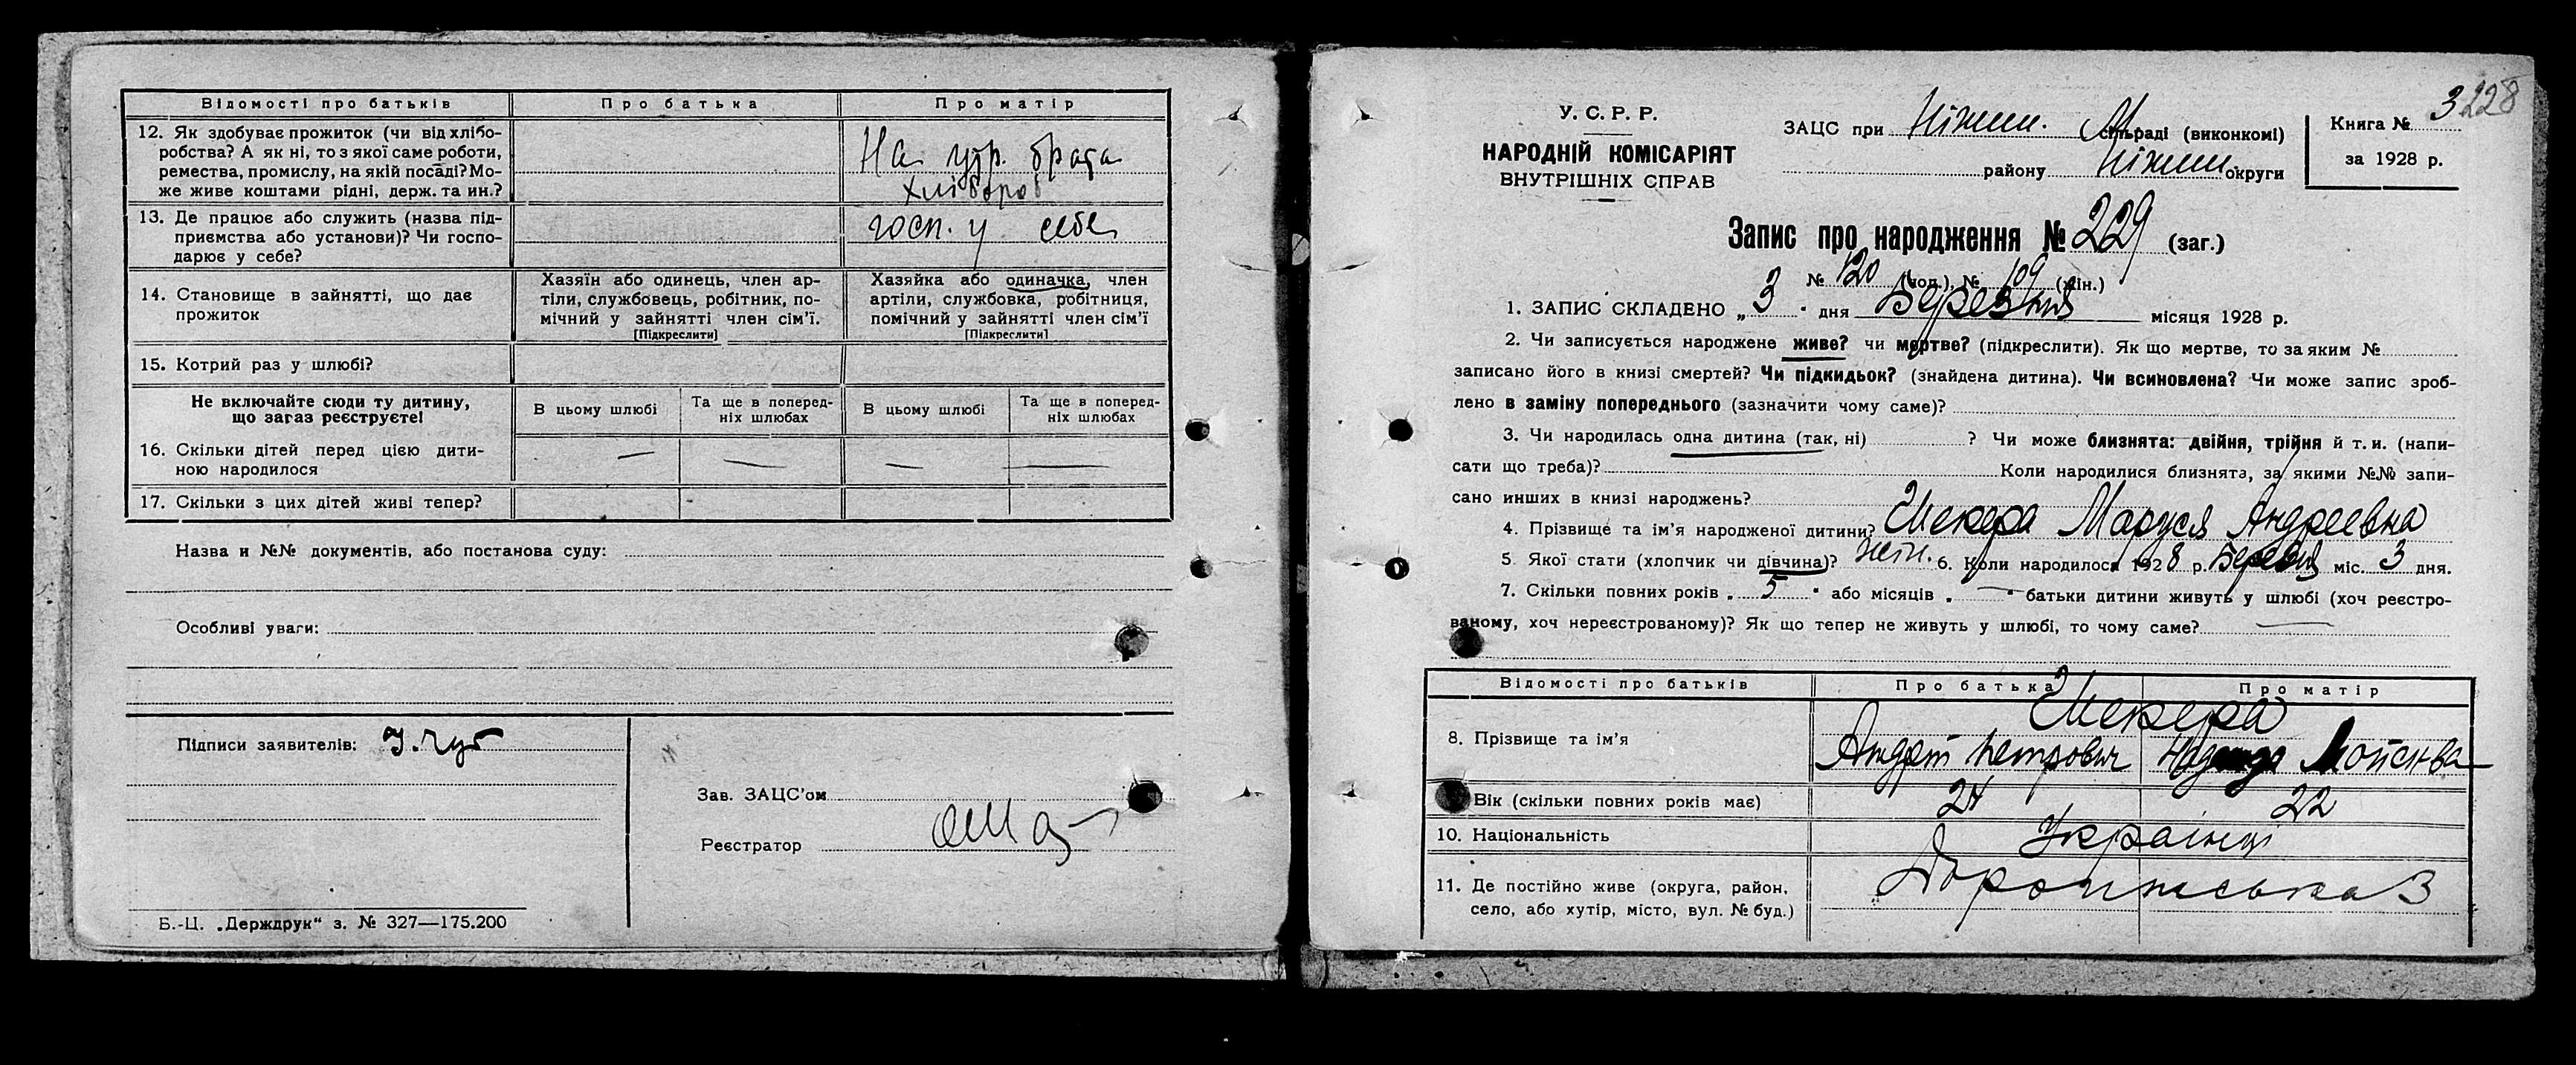 Відомості про батьків Про батька Про матір
12. Як здобуває прожиток (чи від хлібо-
робства? А як ні, то з якої саме роботи,
ремества, промислу, на якій посаді? Мо-
же живе коштами рідні, держ. та ин.?
На утр. брата
хлібороб
13. Де працює або служить (назва під-
приємства або установи)? Чи госпо-
дарює у себе?
госп. у себе
14. Становище в зайнятті, що дає
прожиток
Хазяїн або одинець, член ар-
тіли, службовець, робітник, по-
мічний у зайнятті член сім'ї.
[Підкреслити]
Хазяйка або одиначка, член
артіли, службовка, робітниця,
помічний у зайнятті член сім'ї
[Підкреслити]
15. Котрий раз у шлюбі?
Не включайте сюди ту дитину,
що загаз реєструєте!
В цьому шлюбі
Та ще в поперед-
ніх шлюбах
В цьому шлюбі
Та ще в поперед-
ніх шлюбах
16. Скільки дітей перед цією дити-
ною народилося
— — — —
17. Скільки з цих дітей живі тепер?
Назва и №№ документів, або постанова суду:
Особливі уваги:
Підписи заявителів: У. Чуб
Зав. ЗАЦС'ом
Реєстратор
Б.-Ц. „Держдрук“ з. № 327—175.200
У. С. Р. Р.
НАРОДНІЙ КОМІСАРІЯТ
ВНУТРІШНІХ СПРАВ
ЗАЦС при Ніжин. М сільраді (виконкомі)
району Ніжин округи
228
Книга № 3
за 1928 р.
Запис про народження № 229 (заг.)
№ 120 (чол.), № 109 (жін.)
1. ЗАПИС СКЛАДЕНО „ 3 " дня Березня місяця 1928 р.
2. Чи записується народжене живе? чи мертве? (підкреслити). Як що мертве, то за яким №
записано його в книзі смертей? Чи підкидьок? (знайдена дитина). Чи всиновлена? Чи може запис зроб-
лено в заміну попереднього (зазначити чому саме)?
3. Чи народилась одна дитина (так, ні) ? Чи може близнята: двійня, трійня й т. и. (напи-
сати що треба)? Коли народилися близнята, за якими №№ запи-
сано инших в книзі народжень?
4. Прізвище та ім'я народженої дитини? Шекера Маруся Андреевна
5. Якої стати (хлопчик чи дівчина)? жін. 6. Коли народилося 1928 р. Березня міс. 3 дня.
7. Скільки повних років „ 5 " або місяців „ — " батьки дитини живуть у шлюбі (хоч реєстро-
ваному, хоч нереєстрованому)? Як що тепер не живуть у шлюбі, то чому саме? —
Відомості про батьків Про батька Про матір
Шекера
8. Прізвище та ім'я Андрій Петрович
Вік (скільки повних років має) 24 22
10. Національність Українці
11. Де постійно живе (округа, район,
село, або хутір, місто, вул. № буд.)
3